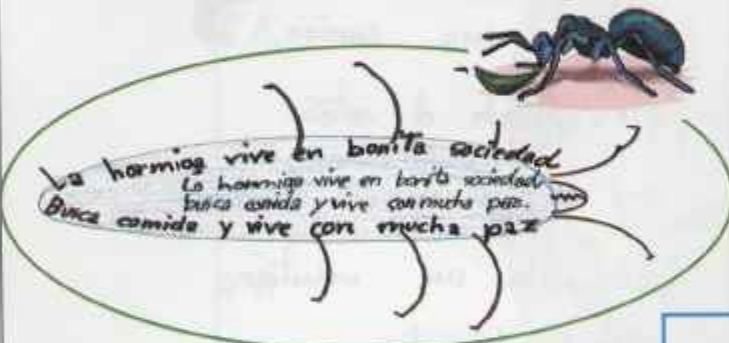 La hormiga vive en bonita sociedad
La hormiga vive en bonita sociedad
busca comida y vive con mucha paz.
Busca comida y vive con mucha paz